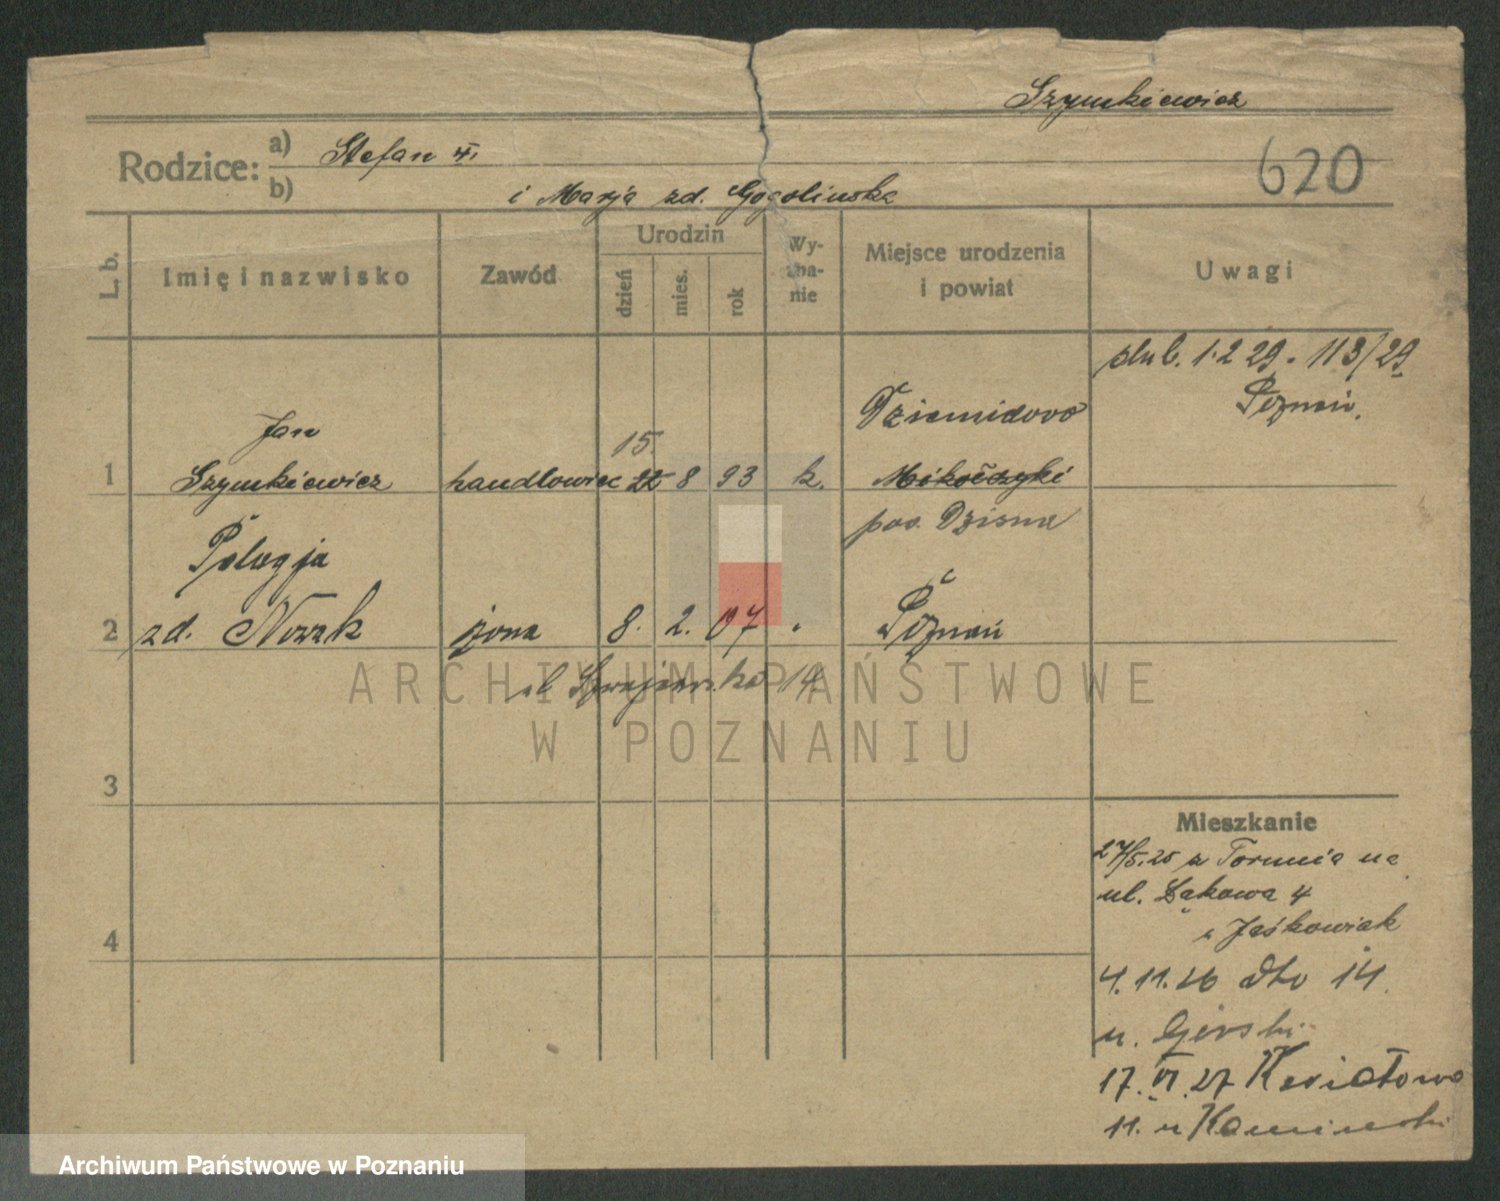 Szymkiewicz
Rodzice: a) Stefan
620
b) i Marja zd. Gogolinska
L. b.
Imię i nazwisko
Zawód
Urodzin
dzień
mies.
rok
Wy-
zna-
nie
Miejsce urodzenia
i powiat
Uwagi
ślub. 1.2 29. 113/29
Poznań.
Jan
15.
Dziemidowo
1 Szymkiewicz handlowiec 22 8 93 k. Mikołczyki
pow. Dzisna
Pelagja
2 zd. Nowak żona 8. 2. 07 Poznań
ul 14
ARCHIWUM PAŃSTWOWE
W POZNANIU
3
Mieszkanie
27/5.25 z Torunia na
ul. Łąkowa 4
u Jaśkowiak
4
4.11.26 dto 14.
u. Górski
17. VI. 27 Kwiatowa
11. u Kaminski
Archiwum Państwowe w Poznaniu